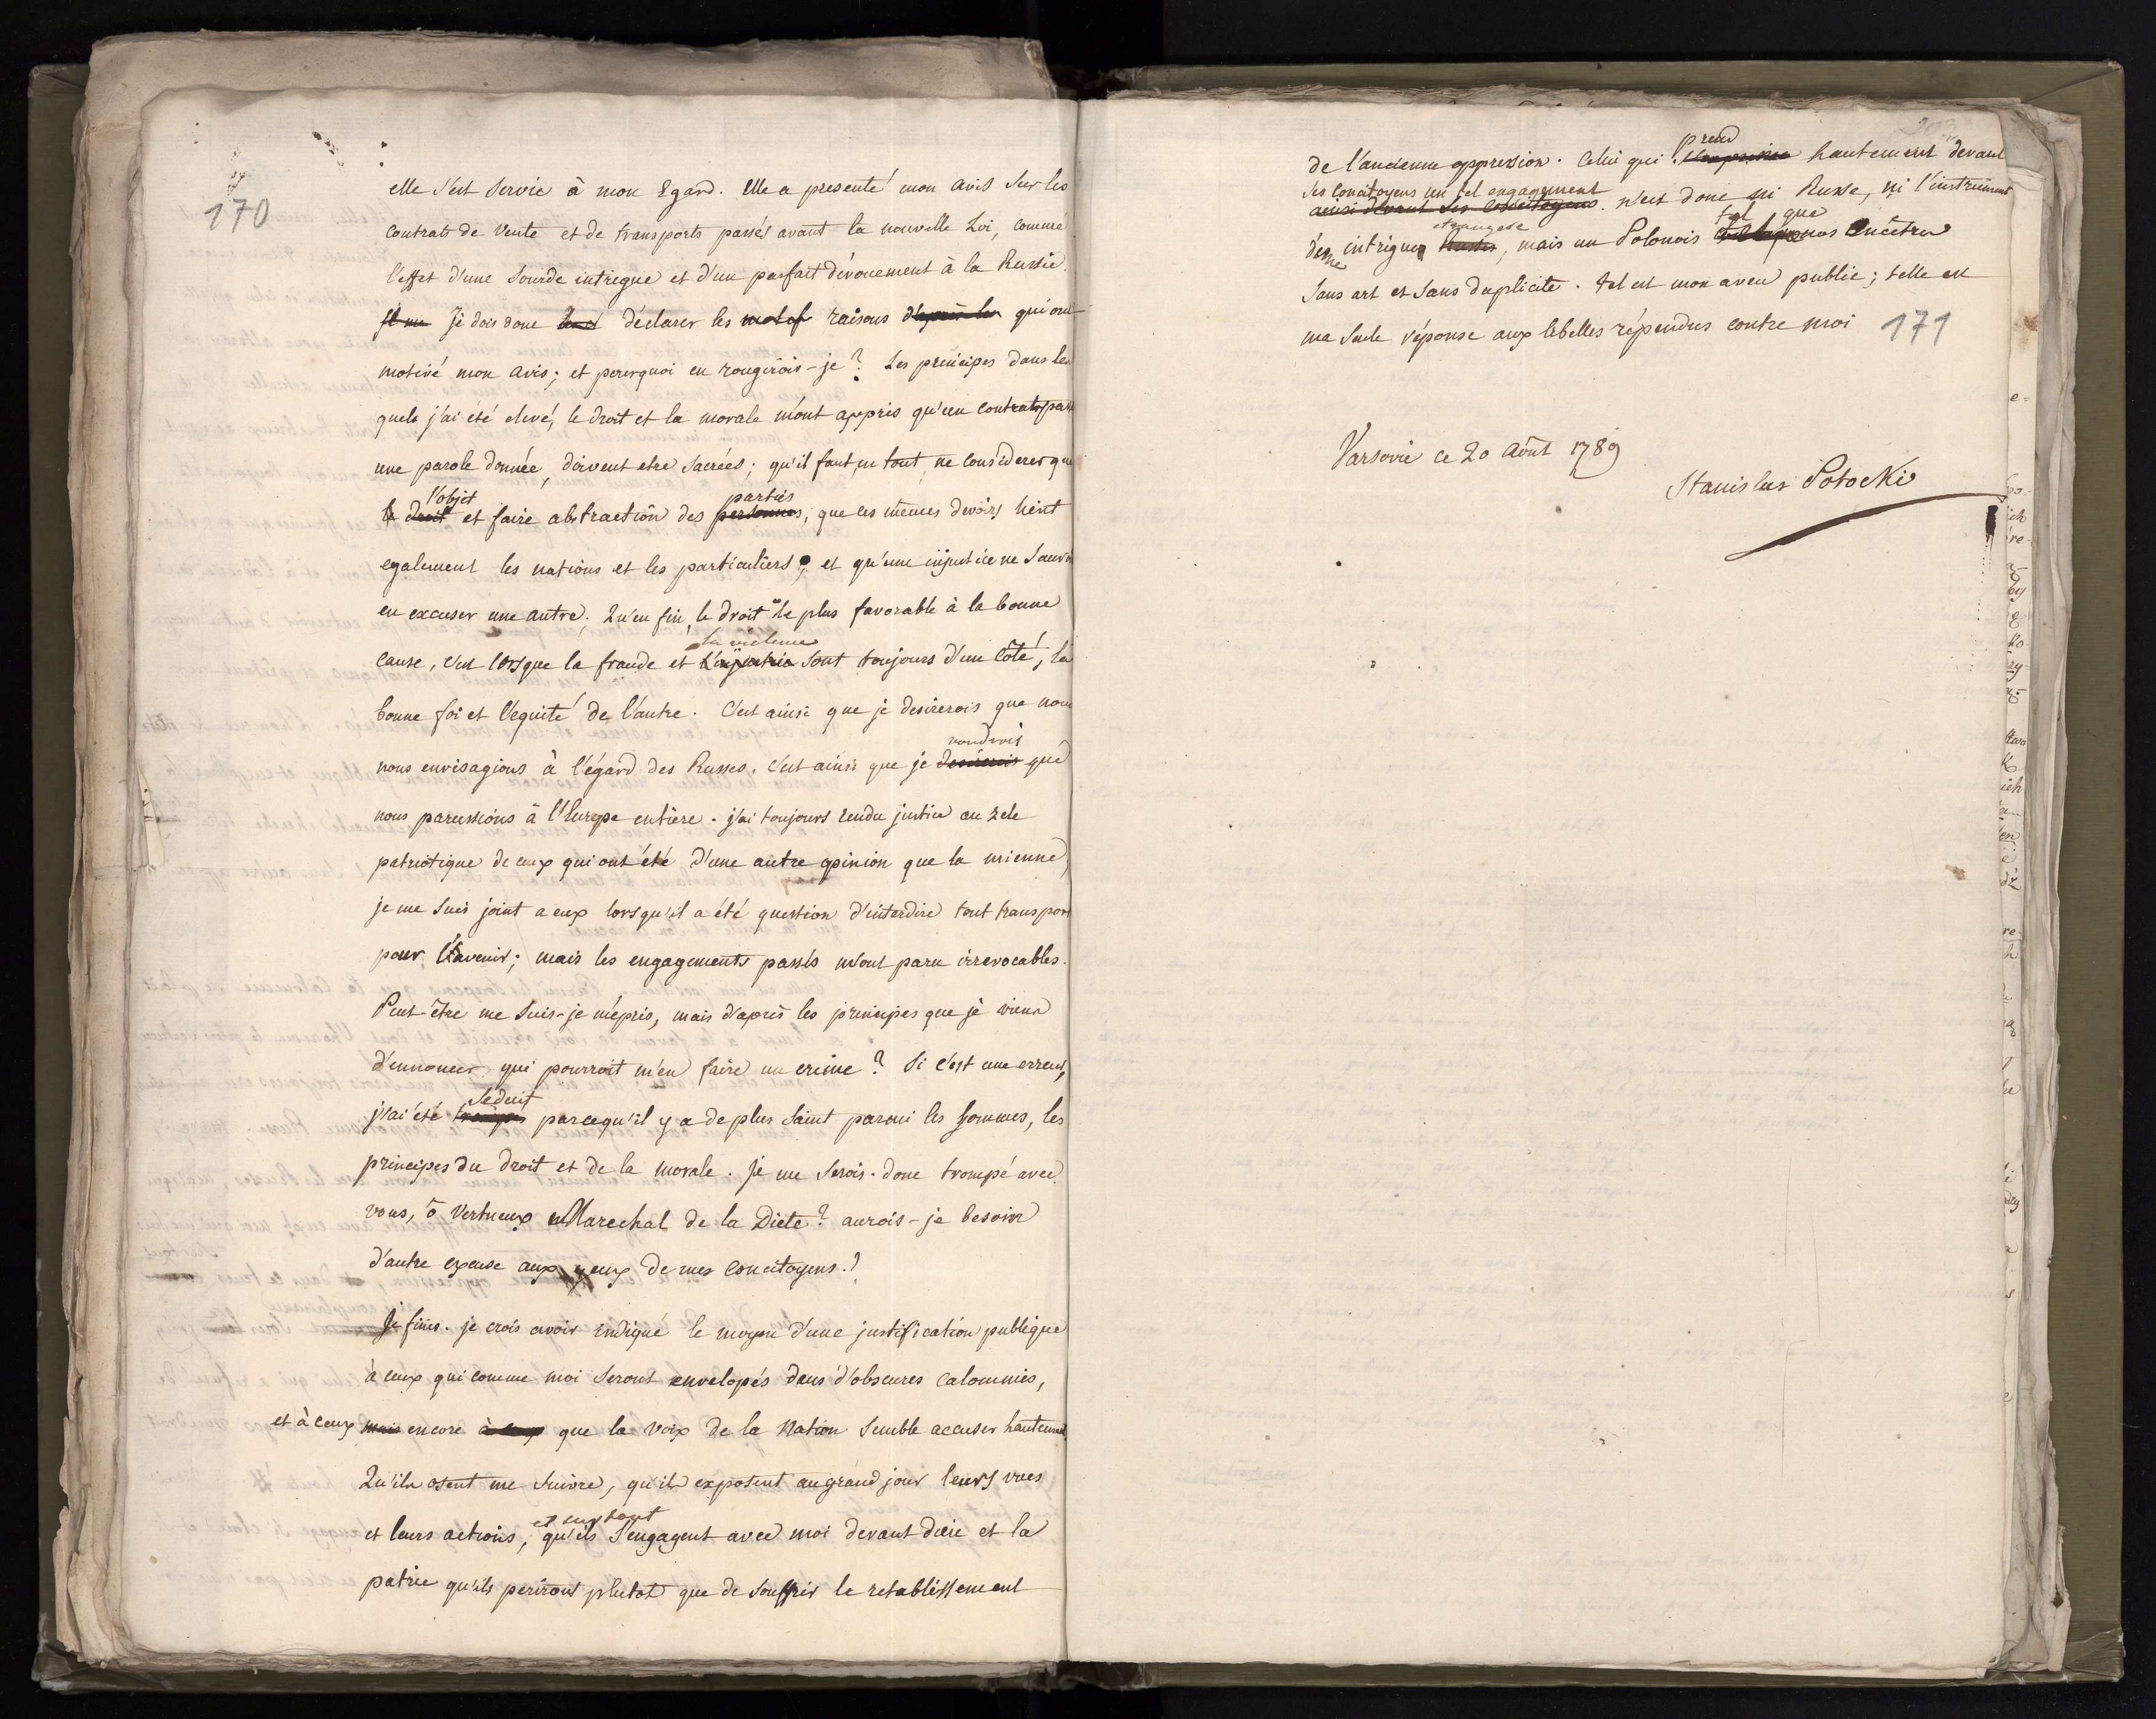 170
elle s'est servie à mon Egard. Elle a presenté mon avis sur les
contrats de vente et de transports passés avant la nouvelle Loi, comme
l'effet d'une sourde intrigue et d'un parfait dévouement à la Russie.
Je dois donc déclarer les motifs raisons d'après les qui ont
motivé mon avis; et pourquoi en rougirois-je? Les principes dans les
quels j'ai été elevé, le droit et la morale m'ont appris qu'un contrat passé
une parole donnée, doivent etre sacrées; qu'il faut en tout, ne considerer que
l'objet
parties
le droit et faire abstraction des personnes; que les mêmes devoirs lient
egalement les nations et les particuliers; et qu'une injustice ne sauroit
en excuser une autre. Qu'en fin, le droit le plus favorable à la bonne
la violence
cause, c'est lorsque la fraude et l'injustice sont toujours d'un côté, la
bonne foi et l'equité de l'autre. C'est ainsi que je desirerois que nous
voudrois
nous envisagions à l'égard des Russes. c'est ainsi que je desirerois que
nous parussions à l'Europe entière. j'ai toujours rendu justice au zele
patriotique de ceux qui ont été d'une autre opinion que la mienne,
je me suis joint a eux lorsqu'il a été question d'interdire tout transport
pour l'avenir; mais les engagements passés m'ont paru irrevocables.
Peut-être me suis-je mépris, mais d'après les principes que je viens
d'ennoncer, qui pourroit m'en faire un crime? Si c'est une erreur,
séduit
j'ai été trompé parcequ'il y a de plus saint parmi les hommes, les
principes du droit et de la morale. je me serois donc trompé avec
vous, ô vertueux Marechal de la Diete? aurois-je besoin
d'autre excuse aux yeux de mes concitoyens?
Je finis. je crois avoir indiqué le moyen d'une justification publique
à ceux qui comme moi seront envelopés dans d'obscures calomnies,
et à ceux mais encore à ceux que la voix de la Nation semble accuser hautement.
Qu'ils osent me suivre, qu'ils exposent au grand jour leurs vues
et surtout
et leurs actions, qu'ils s'engagent avec moi devant dieu et la
patrie qu'ils periront plutot que de souffrir le retablissement
prend
de l'ancienne oppression. Celui qui s'exprime hautement devant
ses concitoyens un tel engagement
ainsi devant ses concitoyens. n'est donc ni Russe, ni l'instrument
etrangere
tel que
d'une intrigue Russe, mais un Polonois tel que nos ancêtres
sans art et sans duplicité. tel est mon aveu public; telle est
ma seule réponse aux libelles répendus contre moi
171
Varsovie ce 20 Août 1789
Stanislas Potocki